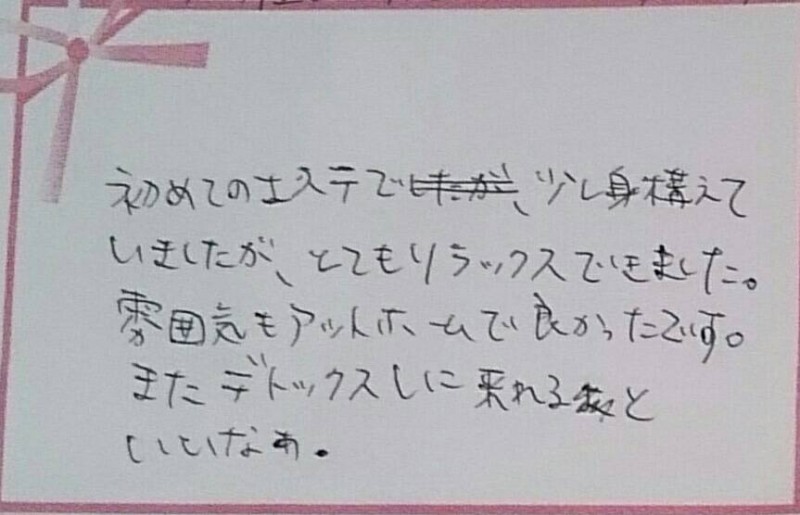 初めてのエステで、少し身構えて
いましたが、とてもリラックスできました。
雰囲気もアットホームで良かったです。
またデトックスしに来れると
いいなぁ。